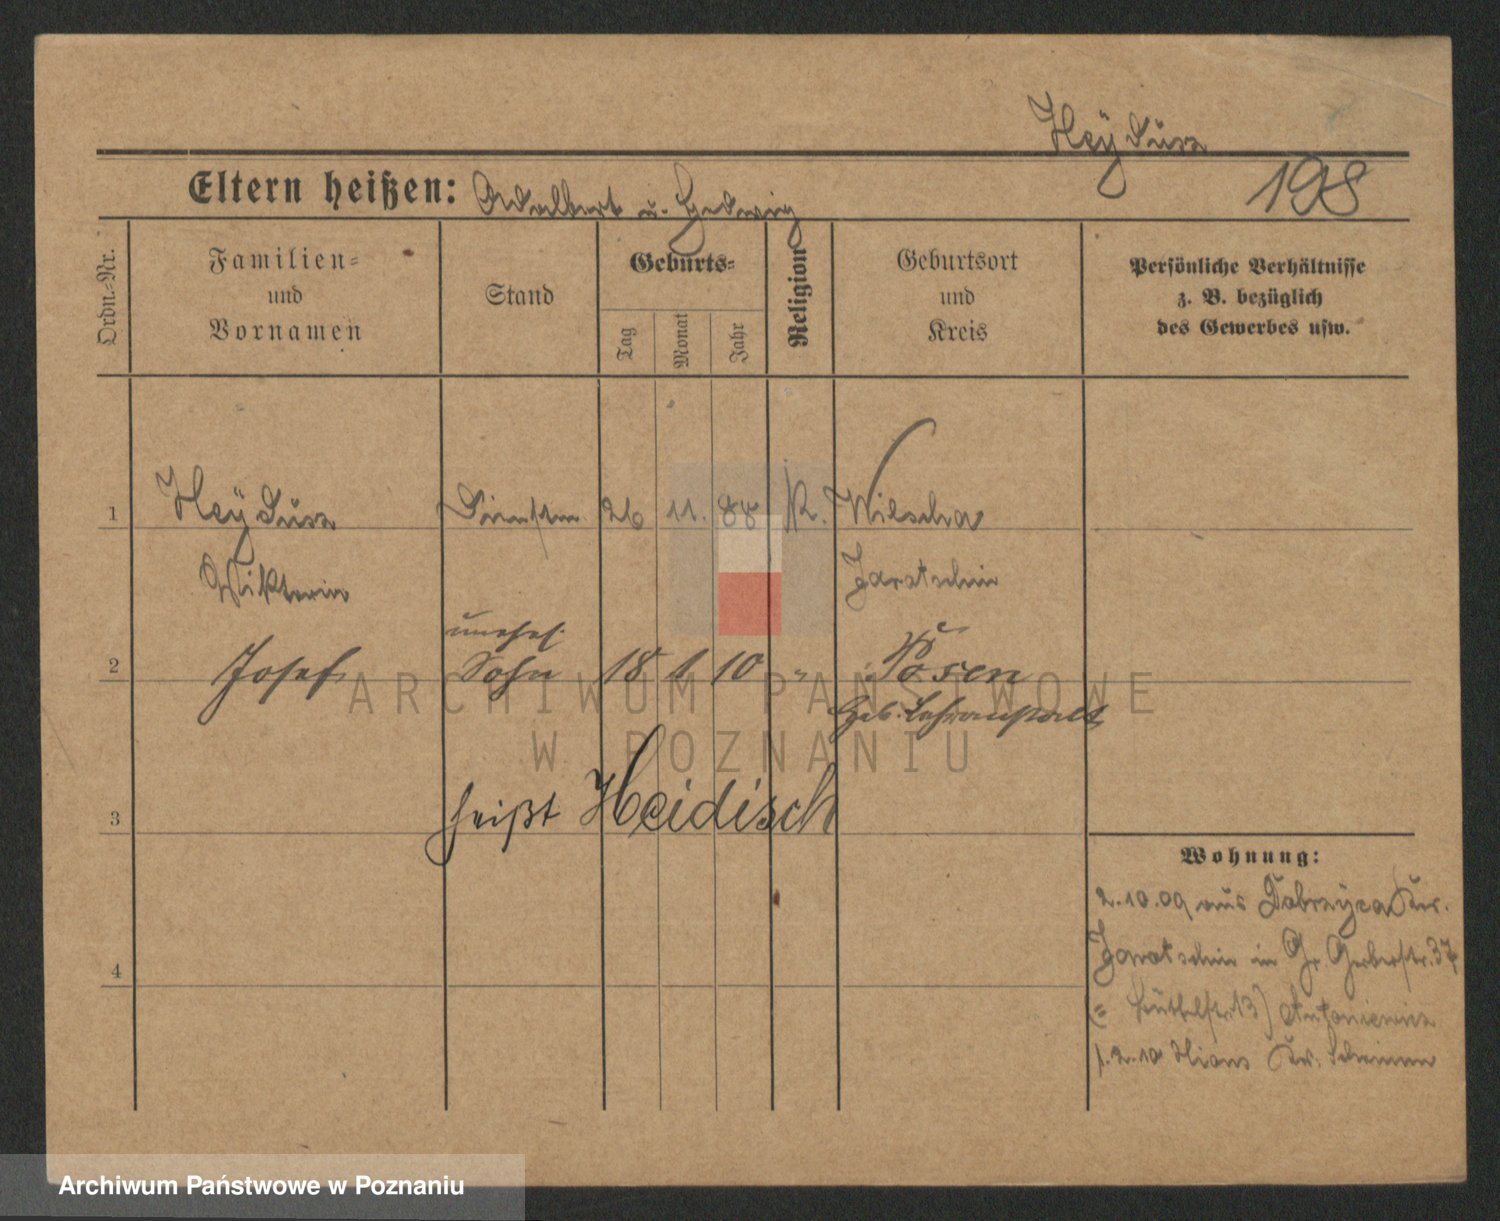 Heÿdusz
Eltern heißen: Adalbert u. Hedwig
198
Ordn.-Nr.
Familien-
und
Vornamen
Stand
Geburts-
Tag
Monat
Jahr
Religion
Geburtsort
und
Kreis
Persönliche Verhältnisse
z. B. bezüglich
des Gewerbes usw.
1 Heÿdusz 26 11. 88 K. Wilscha
Wiktoria Jarotschin
unehel.
2 Josef Sohn 18 1 10 " Posen
Heb. Lehranstalt
heißt Heidisch
3
Wohnung:
2.10.09 aus Dobrzyca Kr.
4
Jarotschin in Gr. Gerberstr. 37
(= 13) Antoniewicz
1.2.10 Kr. Schrimm
ARCHIWUM PAŃSTWOWE
W POZNANIU
Archiwum Państwowe w Poznaniu